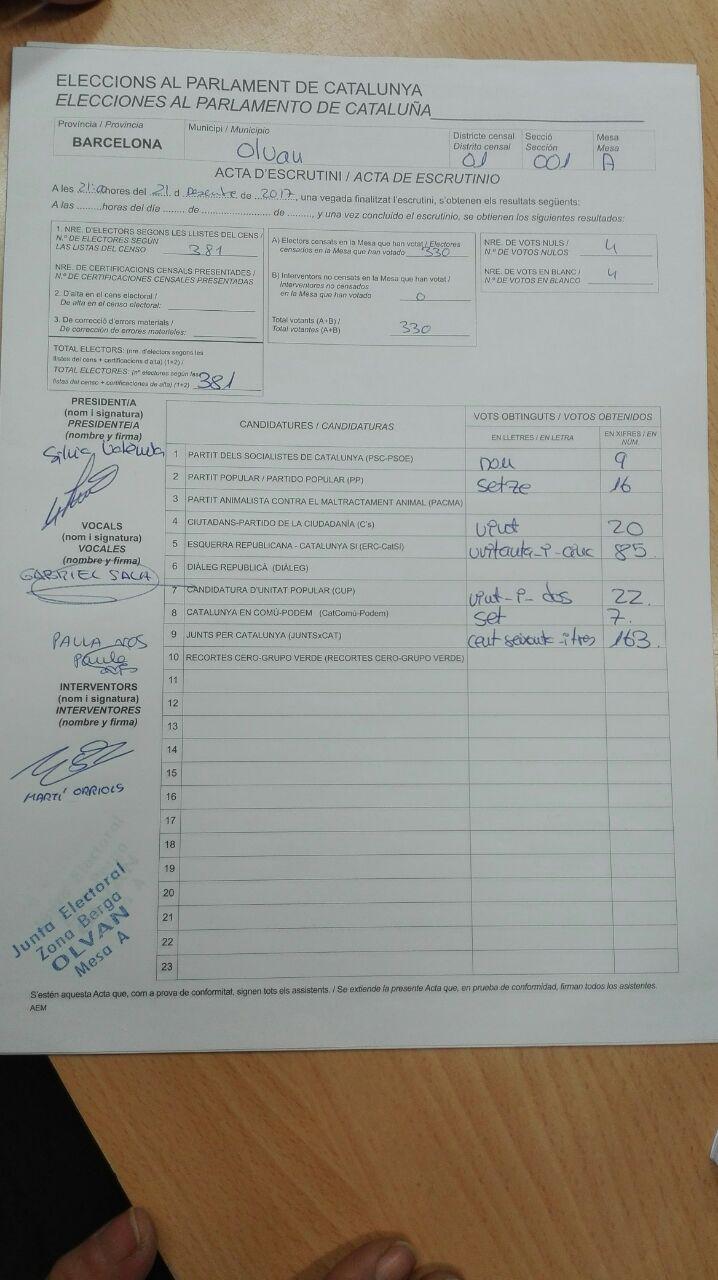 ELECCIONS AL PARLAMENT DE CATALUNYA
ELECCIONES AL PARLAMENTO DE CATALUÑA
Província / Provincia
BARCELONA
Municipi / Municipio
Olvan
Districte censal
Distrito censal
01
Secció
Sección
001
Mesa
Mesa
A
ACTA D'ESCRUTINI / ACTA DE ESCRUTINIO
A les 21:00 hores del 21 d Desembre de 2017, una vegada finalitzat l'escrutini, s'obtenen els resultats següents:
A las .........horas del día ....... de ..................... de ........, y una vez concluido el escrutinio, se obtienen los siguientes resultados:
1. NRE. D'ELECTORS SEGONS LES LLISTES DEL CENS /
N.º DE ELECTORES SEGÚN
LAS LISTAS DEL CENSO 381
NRE. DE CERTIFICACIONS CENSALS PRESENTADES /
N.º DE CERTIFICACIONES CENSALES PRESENTADAS
2. D'alta en el cens electoral /
De alta en el censo electoral:
3. De correcció d'errors materials /
De corrección de errores materiales:
TOTAL ELECTORS: (nre. d'electors segons les
llistes del cens + certificacions d'alta) (1+2) /
TOTAL ELECTORES: (nº electores según las
listas del censo + certificaciones de alta) (1+2) 381
A) Electors censats en la Mesa que han votat / Electores
censados en la Mesa que han votado 330
B) Interventors no censats en la Mesa que han votat /
Interventores no censados
en la Mesa que han votado 0
Total votants (A+B) /
Total votantes (A+B) 330
NRE. DE VOTS NULS /
N.º DE VOTOS NULOS 4
NRE. DE VOTS EN BLANC /
N.º DE VOTOS EN BLANCO 4
PRESIDENT/A
(nom i signatura)
PRESIDENTE/A
(nombre y firma)
Silvia
VOCALS
(nom i signatura)
VOCALES
(nombre y firma)
GABRIEL SALA
PAULA
Paula
INTERVENTORS
(nom i signatura)
INTERVENTORES
(nombre y firma)
MARTÍ ORRIOLS
CANDIDATURES / CANDIDATURAS
VOTS OBTINGUTS / VOTOS OBTENIDOS
EN LLETRES / EN LETRA
EN XIFRES / EN NÚM.
1 PARTIT DELS SOCIALISTES DE CATALUNYA (PSC-PSOE) nou 9
2 PARTIT POPULAR / PARTIDO POPULAR (PP) setze 16
3 PARTIT ANIMALISTA CONTRA EL MALTRACTAMENT ANIMAL (PACMA)
4 CIUTADANS-PARTIDO DE LA CIUDADANÍA (C's) vint 20
5 ESQUERRA REPUBLICANA - CATALUNYA SÍ (ERC-CatSÍ) vuitanta-i-cinc 85
6 DIÀLEG REPUBLICÀ (DIÀLEG)
7 CANDIDATURA D'UNITAT POPULAR (CUP) vint-i-dos 22.
8 CATALUNYA EN COMÚ-PODEM (CatComú-Podem) set 7.
9 JUNTS PER CATALUNYA (JUNTSxCAT) cent seixanta-i tres 163.
10 RECORTES CERO-GRUPO VERDE (RECORTES CERO-GRUPO VERDE)
11
12
13
14
15
16
17
18
19
20
21
22
23
Junta Electoral
Zona Berga
OLVAN
Mesa A
S'estén aquesta Acta que, com a prova de conformitat, signen tots els assistents. / Se extiende la presente Acta que, en prueba de conformidad, firman todos los asistentes.
AEM